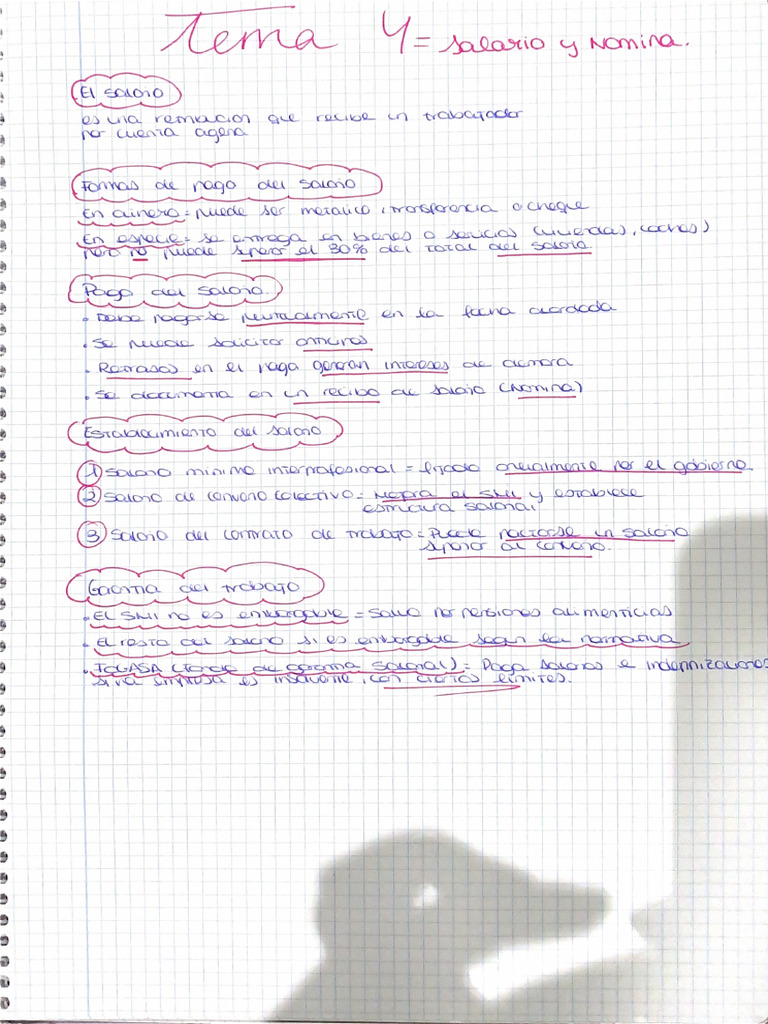 Tema 4 = Salario y Nomina.
El salario
es una remuncion que recibe un trabajador
por cuenta agena
Formas de pago del salario
En dinero = puede ser metalico, transferencia o cheque
En especie = se entrega en bienes o servicios (viviendas, coches)
pero no puede superar el 30% del total del salario.
Pago del salario.
• Debe pagarse puntualmente en la fecha acordada
• Se puede solicitar anticipos
• Retrasos en el pago generan intereses de demora
• Se documenta en un recibo de salario (Nomina)
Establecimiento del salario
1 Salario minimo interprofesional = fijado anualmente por el gobierno.
2 Salario de convenio colectivo = Mejora el SMI y establece
estructura salarial
3 Salario del contrato de trabajo = Puede pactarse un salario
superior al convenio.
Garantia del trabajo
• El SMI no es embargable = salvo por pensiones alimenticias
• El resto del salario si es embargable segun la normativa
• FOGASA (Fondo de garantia salarial) = Paga salarios e indemnizaciones
si la empresa es insolvente, con ciertos limites.